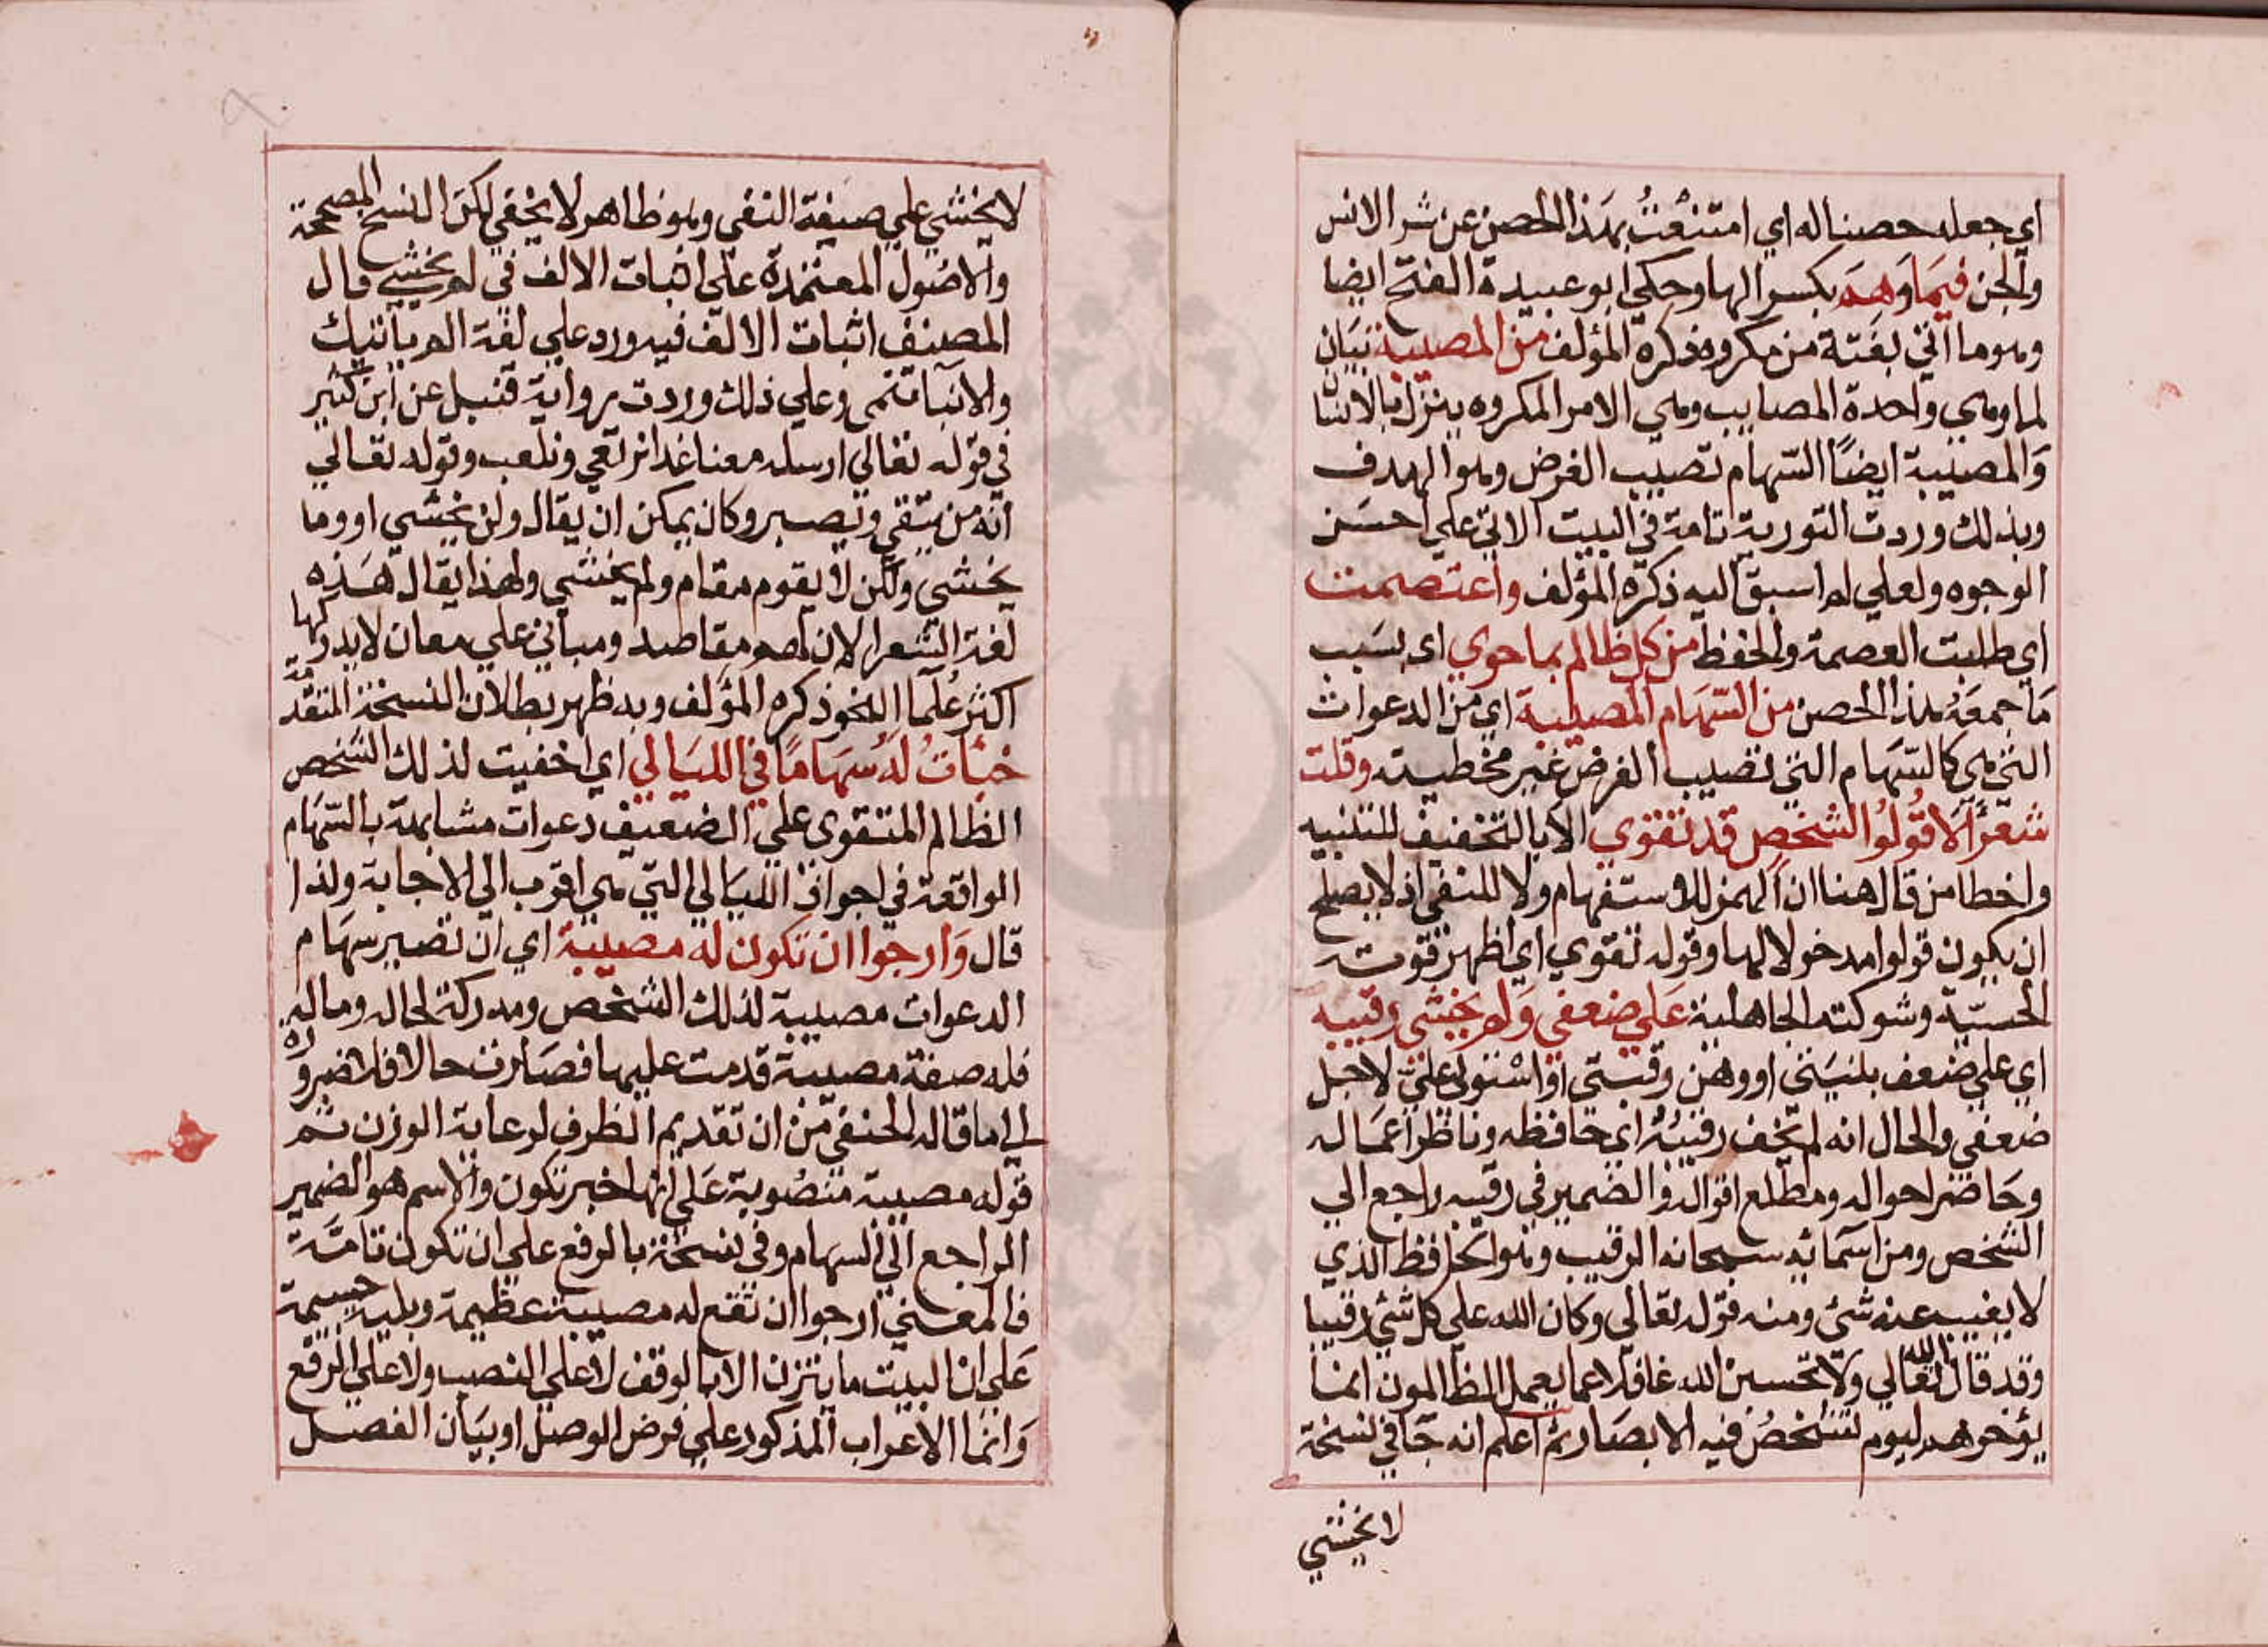 اي جعله حصنا له اي امتنعت بهذا الحصن عن شر الانس
والجن فيما وهم بكسر الها وحكي ابو عبيدة الفتح ايضا
وهو ما اتي بغتة من مكروه ذكره المؤلف من المصيبة بيان
لما وهي واحدة المصايب وهي الامر المكروه ينزل بالانسا
والمصيبة ايضًا السّهام تصيب الغرض وهو الهدف
وبذلك وردت التورية تامة في البيت الاتي علي احسن
الوجوه ولعلي لم اسبق اليه ذكره المؤلف واعتصمت
اي طلبت العصمة والحفظ من كل ظالم بما حوي اي بسبب
ما جمعه هذا الحصن من السّهام المصيبة اي من الدعوات
التي هي كالسّهام التي تصيب الغرض غير مخطيته وقلت
شعرًا الا قولوا لشخص قد تقوي الا بالتخفيف للتنبيه
واخطا من قال هنا ان الهمز للاستفهام ولا للنفي اذ لا يصلح
ان يكون قولوا مدخولا لها وقوله تقوي اي اظهر قوته
الحسيّة وشوكته الجاهلية علي ضعفي ولم يخشي رقيبه
اي علي ضعف بلنيتي او وهن رقبتي او استولي علي لاجل
ضعفي والحال انه لم يخف رقيبه اي حافظه وناظر اعماله
وحاضر احواله ومطلع اقواله والضمير في رقيبه راجع الي
الشخص ومن اسمائه سبحانه الرقيب وهو الحافظ الذي
لا يغيب عنه شئ ومنه قوله تعالي وكان الله علي كل شئ رقيبا
وقد قال الله تعالي ولا تحسبن الله غافلا عما يعمل الظالمون انما
يؤخرهم ليوم تشخص فيه الابصار ثم اعلم انه جا في نسخة
لا يخشي
لا يخشي علي صيغة النفي وهو ظاهر لا يخفي لكن النسخ المصححة
والاصول المعتمدة علي اثبات الالف في لم يخشي قال
المصنف اثبات الالف فيه ورد علي لغة الم ياتيك
والانبا تنمي وعلي ذلك وردت رواية قنبل عن ابن كثير
في قوله تعالي ارسله معنا غدا نرتعي ونلعب وقوله تعالي
انه من يتقي ويصبر وكان يمكن ان يقال ولن يخشي او وما
يخشي ولكن لا يقوم مقام ولم يخشي ولهذا يقال هذه
لغة الشعرا لان لهم مقاصد ومباني علي معان لا يدركها
اكثر علما النحو ذكره المؤلف وبه ظهر بطلان النسخة المتقدمة
خبأت له سهاما في الليالي اي اخفيت لذلك الشخص
الظالم المتقوي علي الضعيف دعوات مشابهة بالسّهام
الواقعة في اجواف الليالي التي هي اقرب الي الاجابة ولذا
قال وارجوا ان تكون له مصيبة اي ان تصير سهام
الدعوات مصيبة لذلك الشخص ومدركة لحاله وماله
فله صفة مصيبة قدمت عليها فصارت حالا فلا ضرورة
الي ما قاله الحنفي من ان تقديم الظرف لرعاية الوزن ثم
قوله مصيبة منصوبة علي انها خبر تكون والاسم هو الضمير
الراجع الي السهام وفي نسخة بالرفع علي ان تكون تامّة
فالمعني ارجوا ان تقع له مصيبة عظيمة وبلية جسيمة
علي ان البيت ما يتزن الا بالوقف لا علي النصب ولا علي الرفع
وانما الاعراب المذكور علي فرض الوصل او بيان الفصل